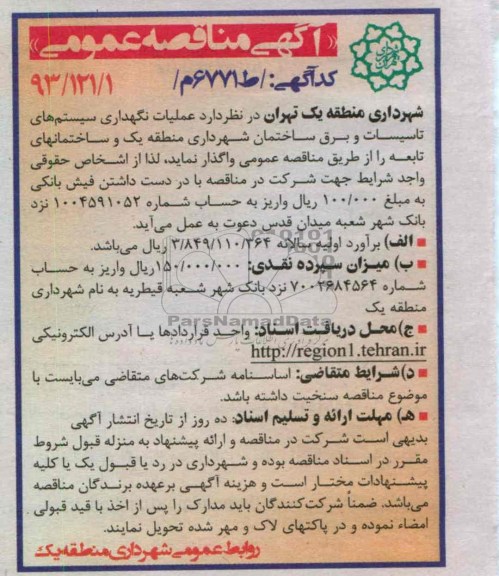 «آگهی مناقصه عمومی»
کدآگهی: /ط۶۷۷۱م/ ۹۳/۱۲۱/۱
شهرداری منطقه یک تهران در نظردارد عملیات نگهداری سیستم‌های
تاسیسات و برق ساختمان شهرداری منطقه یک و ساختمانهای
تابعه را از طریق مناقصه عمومی واگذار نماید، لذا از اشخاص حقوقی
واجد شرایط جهت شرکت در مناقصه با در دست داشتن فیش بانکی
به مبلغ ۱۰۰/۰۰۰ ریال واریز به حساب شماره ۱۰۰۴۵۹۱۰۵۲ نزد
بانک شهر شعبه میدان قدس دعوت به عمل می‌آید.
■ الف) برآورد اولیه سالانه ۳/۸۴۹/۱۱۰/۳۶۴ ریال می‌باشد.
■ ب) میزان سپرده نقدی: ۱۵۰/۰۰۰/۰۰۰ریال واریز به حساب
شماره ۷۰۰۲۶۸۴۵۶۴ نزد بانک شهر شعبه قیطریه به نام شهرداری
منطقه یک
ParsNamadData
■ ج)محل دریافت اسناد: واحد قراردادها یا آدرس الکترونیکی
http://region1.tehran.ir
■ د)شرایط متقاضی: اساسنامه شرکت‌های متقاضی می‌بایست با
موضوع مناقصه سنخیت داشته باشد.
■ هـ) مهلت ارائه و تسلیم اسناد: ده روز از تاریخ انتشار آگهی
بدیهی است شرکت در مناقصه و ارائه پیشنهاد به منزله قبول شروط
مقرر در اسناد مناقصه بوده و شهرداری در رد یا قبول یک یا کلیه
پیشنهادات مختار است و هزینه آگهی برعهده برندگان مناقصه
می‌باشد. ضمناً شرکت‌کنندگان باید مدارک را پس از اخذ با قید قبولی
امضاء نموده و در پاکتهای لاک و مهر شده تحویل نمایند.
روابط عمومی شهرداری منطقه یک